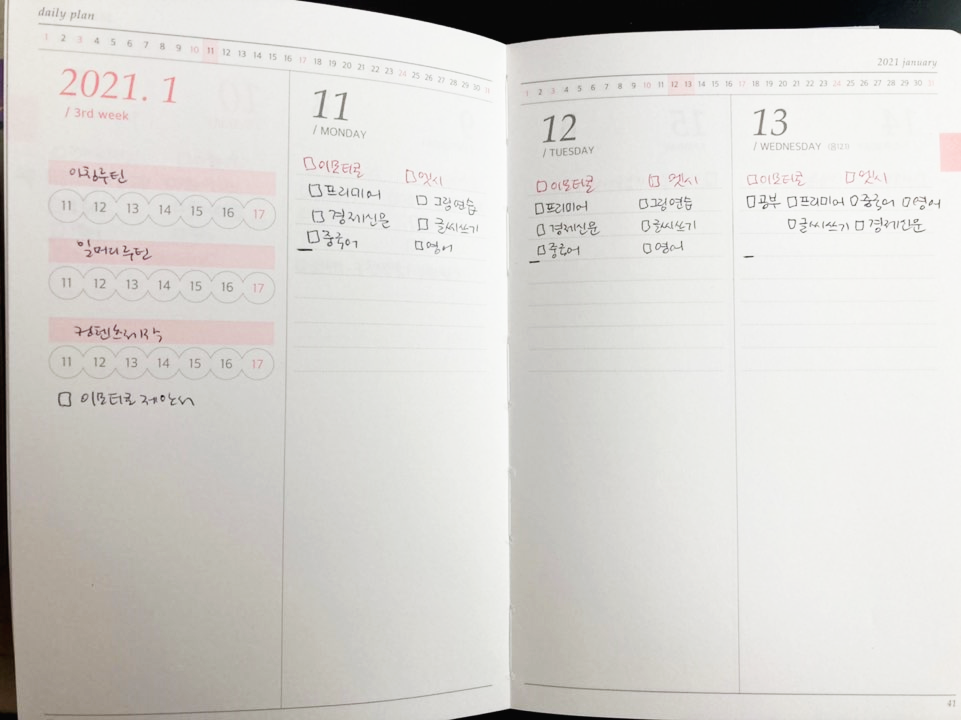 daily plan
1 2 3 4 5 6 7 8 9 10 11 12 13 14 15 16 17 18 19 20 21 22 23 24 25 26 27 28 29 30 31
2021. 1
/ 3rd week
아침루틴
11 12 13 14 15 16 17
일머리루틴
11 12 13 14 15 16 17
컨텐츠제작
11 12 13 14 15 16 17
이모티콘 제안서
11
/ MONDAY
이모티콘 엣시
프리미어 그림연습
경제신문 글씨쓰기
중국어 영어
2021 january
1 2 3 4 5 6 7 8 9 10 11 12 13 14 15 16 17 18 19 20 21 22 23 24 25 26 27 28 29 30 31
12
/ TUESDAY
이모티콘 엣시
프리미어 그림연습
경제신문 글씨쓰기
중국어 영어
13
/ WEDNESDAY
이모티콘 엣시
공부 프리미어 중국어 영어
글씨쓰기 경제신문
41